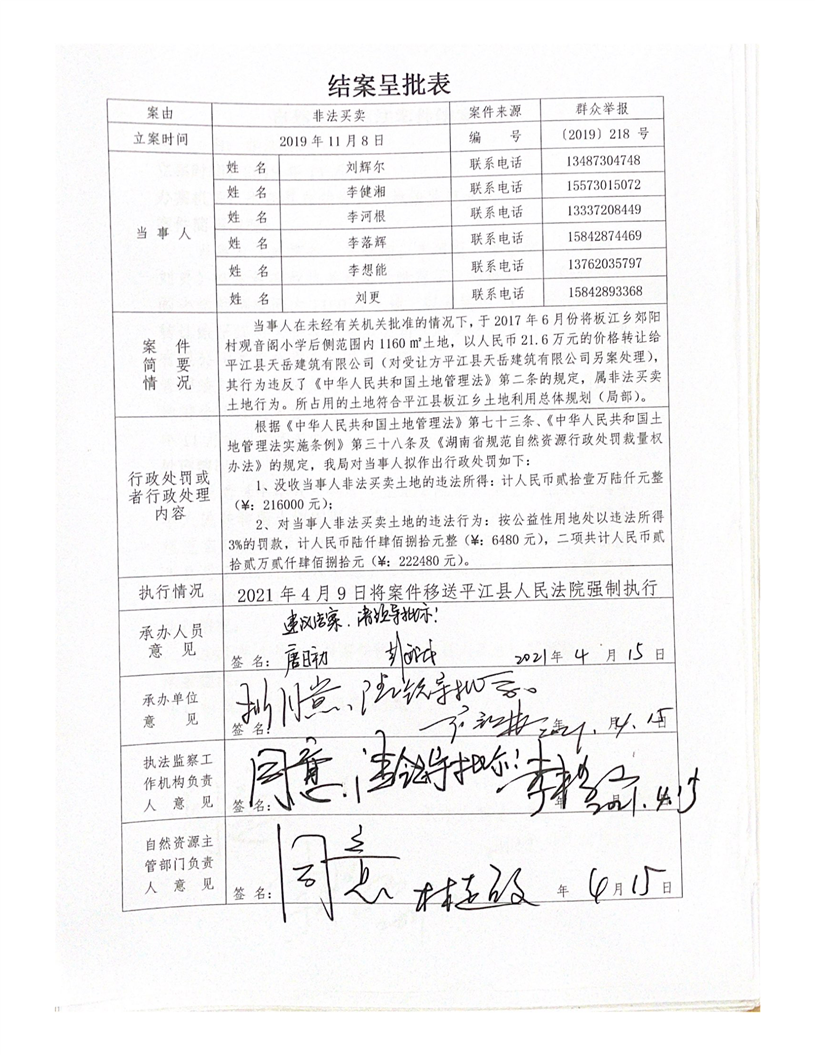 结案呈批表
案由 非法买卖 案件来源 群众举报
立案时间 2019年11月8日 编 号 〔2019〕218 号
当 事 人
姓 名 刘辉尔 联系电话 13487304748
姓 名 李健湘 联系电话 15573015072
姓 名 李河根 联系电话 13337208449
姓 名 李落辉 联系电话 15842874469
姓 名 李想能 联系电话 13762035797
姓 名 刘更 联系电话 15842893368
案 件
简 要
情 况
当事人在未经有关机关批准的情况下，于 2017 年 6 月份将板江乡郊阳
村观音阁小学后侧范围内 1160 ㎡土地，以人民币 21.6 万元的价格转让给
平江县天岳建筑有限公司（对受让方平江县天岳建筑有限公司另案处理），
其行为违反了《中华人民共和国土地管理法》第二条的规定，属非法买卖
土地行为。所占用的土地符合平江县板江乡土地利用总体规划（局部）。
行政处罚或
者行政处理
内容
根据《中华人民共和国土地管理法》第七十三条、《中华人民共和国土
地管理法实施条例》第三十八条及《湖南省规范自然资源行政处罚裁量权
办法》的规定，我局对当事人拟作出行政处罚如下：
1、没收当事人非法买卖土地的违法所得：计人民币贰拾壹万陆仟元整
（¥：216000 元）；
2、对当事人非法买卖土地的违法行为：按公益性用地处以违法所得
3%的罚款，计人民币陆仟肆佰捌拾元整（¥：6480 元），二项共计人民币贰
拾贰万贰仟肆佰捌拾元（¥：222480 元）。
执行情况 2021 年 4 月 9 日将案件移送平江县人民法院强制执行
承办人员
意 见
建议结案，请领导批示！
签 名： 2021年 4 月 15 日
承办单位
意 见
拟同意，请领导批示。
签 名： 年 月 日 2021.4.15
执法监察工
作机构负责
人 意 见
同意，请领导批示！
签 名： 年 月 2021.4.15
自然资源主
管部门负责
人 意 见
同意
签 名： 年 4月15日
17